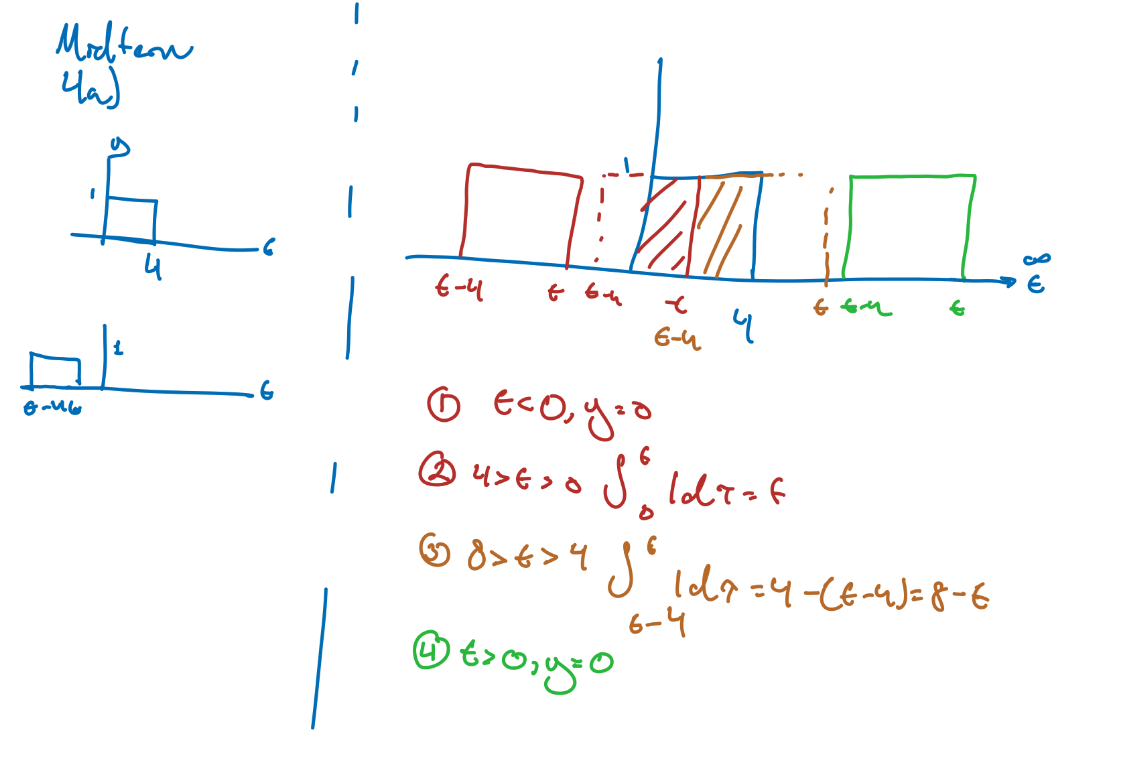 Midterm
4a)
y
1
t
4
1
t
t-4 t
1
∞
t-4 t t-4 t 4 t t-4 t t
t-4
① t<0, y=0
② 4>t>0 ∫₀ᵗ 1dτ = t
③ 8>t>4 ∫ₜ₋₄ᵗ 1dτ = 4-(t-4) = 8-t
④ t>0, y=0